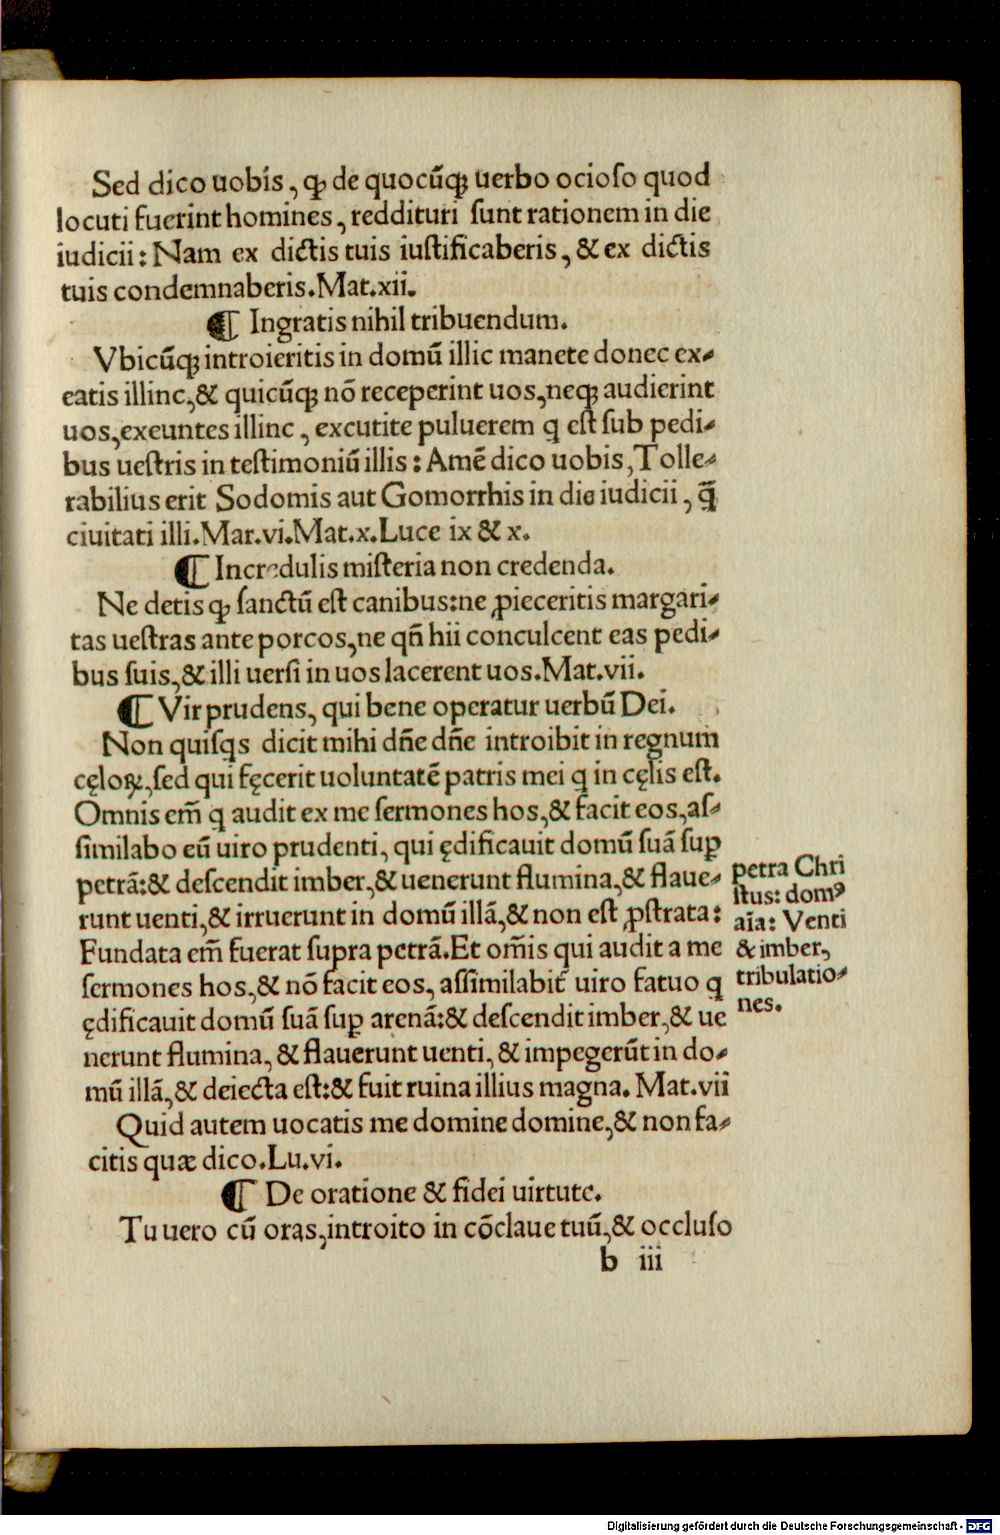 Sed dico uobis, ꝙ de quocũꝗ uerbo ocioſo quod
locuti fuerint homines, reddituri ſunt rationem in die
iudicii: Nam ex dictis tuis iuſtificaberis, & ex dictis
tuis condemnaberis. Mat. xii.
¶ Ingratis nihil tribuendum.
Vbicũꝗ introieritis in domũ illic manete donec ex-
eatis illinc, & quicũꝗ nõ receperint uos, neꝗ audierint
uos, exeuntes illinc, excutite puluerem q eſt ſub pedi-
bus ueſtris in teſtimoniũ illis: Amẽ dico uobis, Tolle-
rabilius erit Sodomis aut Gomorrhis in die iudicii, q̃
ciuitati illi. Mar. vi. Mat. x. Luce ix & x.
¶ Incredulis miſteria non credenda.
Ne detis ꝙ ſanctũ eſt canibus: ne ꝓieceritis margari-
tas ueſtras ante porcos, ne qñ hii conculcent eas pedi-
bus ſuis, & illi uerſi in uos lacerent uos. Mat. vii.
¶ Vir prudens, qui bene operatur uerbũ Dei.
Non quiſqs dicit mihi dñe dñe introibit in regnum
cęloꝝ, ſed qui fęcerit uoluntatẽ patris mei q in cęlis eſt.
Omnis em̃ q audit ex me ſermones hos, & facit eos, aſ-
ſimilabo eũ uiro prudenti, qui ędificauit domũ ſuã ſuꝑ
petrã: & deſcendit imber, & uenerunt flumina, & flaue-
runt uenti, & irruerunt in domũ illã, & non eſt ꝓſtrata:
Fundata em̃ fuerat ſupra petrã. Et om̃is qui audit a me
ſermones hos, & nõ facit eos, aſſimilabit̃ uiro fatuo q
ędificauit domũ ſuã ſuꝑ arenã: & deſcendit imber, & ue
nerunt flumina, & flauerunt uenti, & impegerũt in do-
mũ illã, & deiecta eſt: & fuit ruina illius magna. Mat. vii
Quid autem uocatis me domine domine, & non fa-
citis quæ dico. Lu. vi.
¶ De oratione & fidei uirtute.
Tu uero cũ oras, introito in cõclaue tuũ, & occluſo
b iii
petra Chri
ſtus: domꝰ
aĩa: Venti
& imber,
tribulatio-
nes.
Digitalisierung gefördert durch die Deutsche Forschungsgemeinschaft - DFG